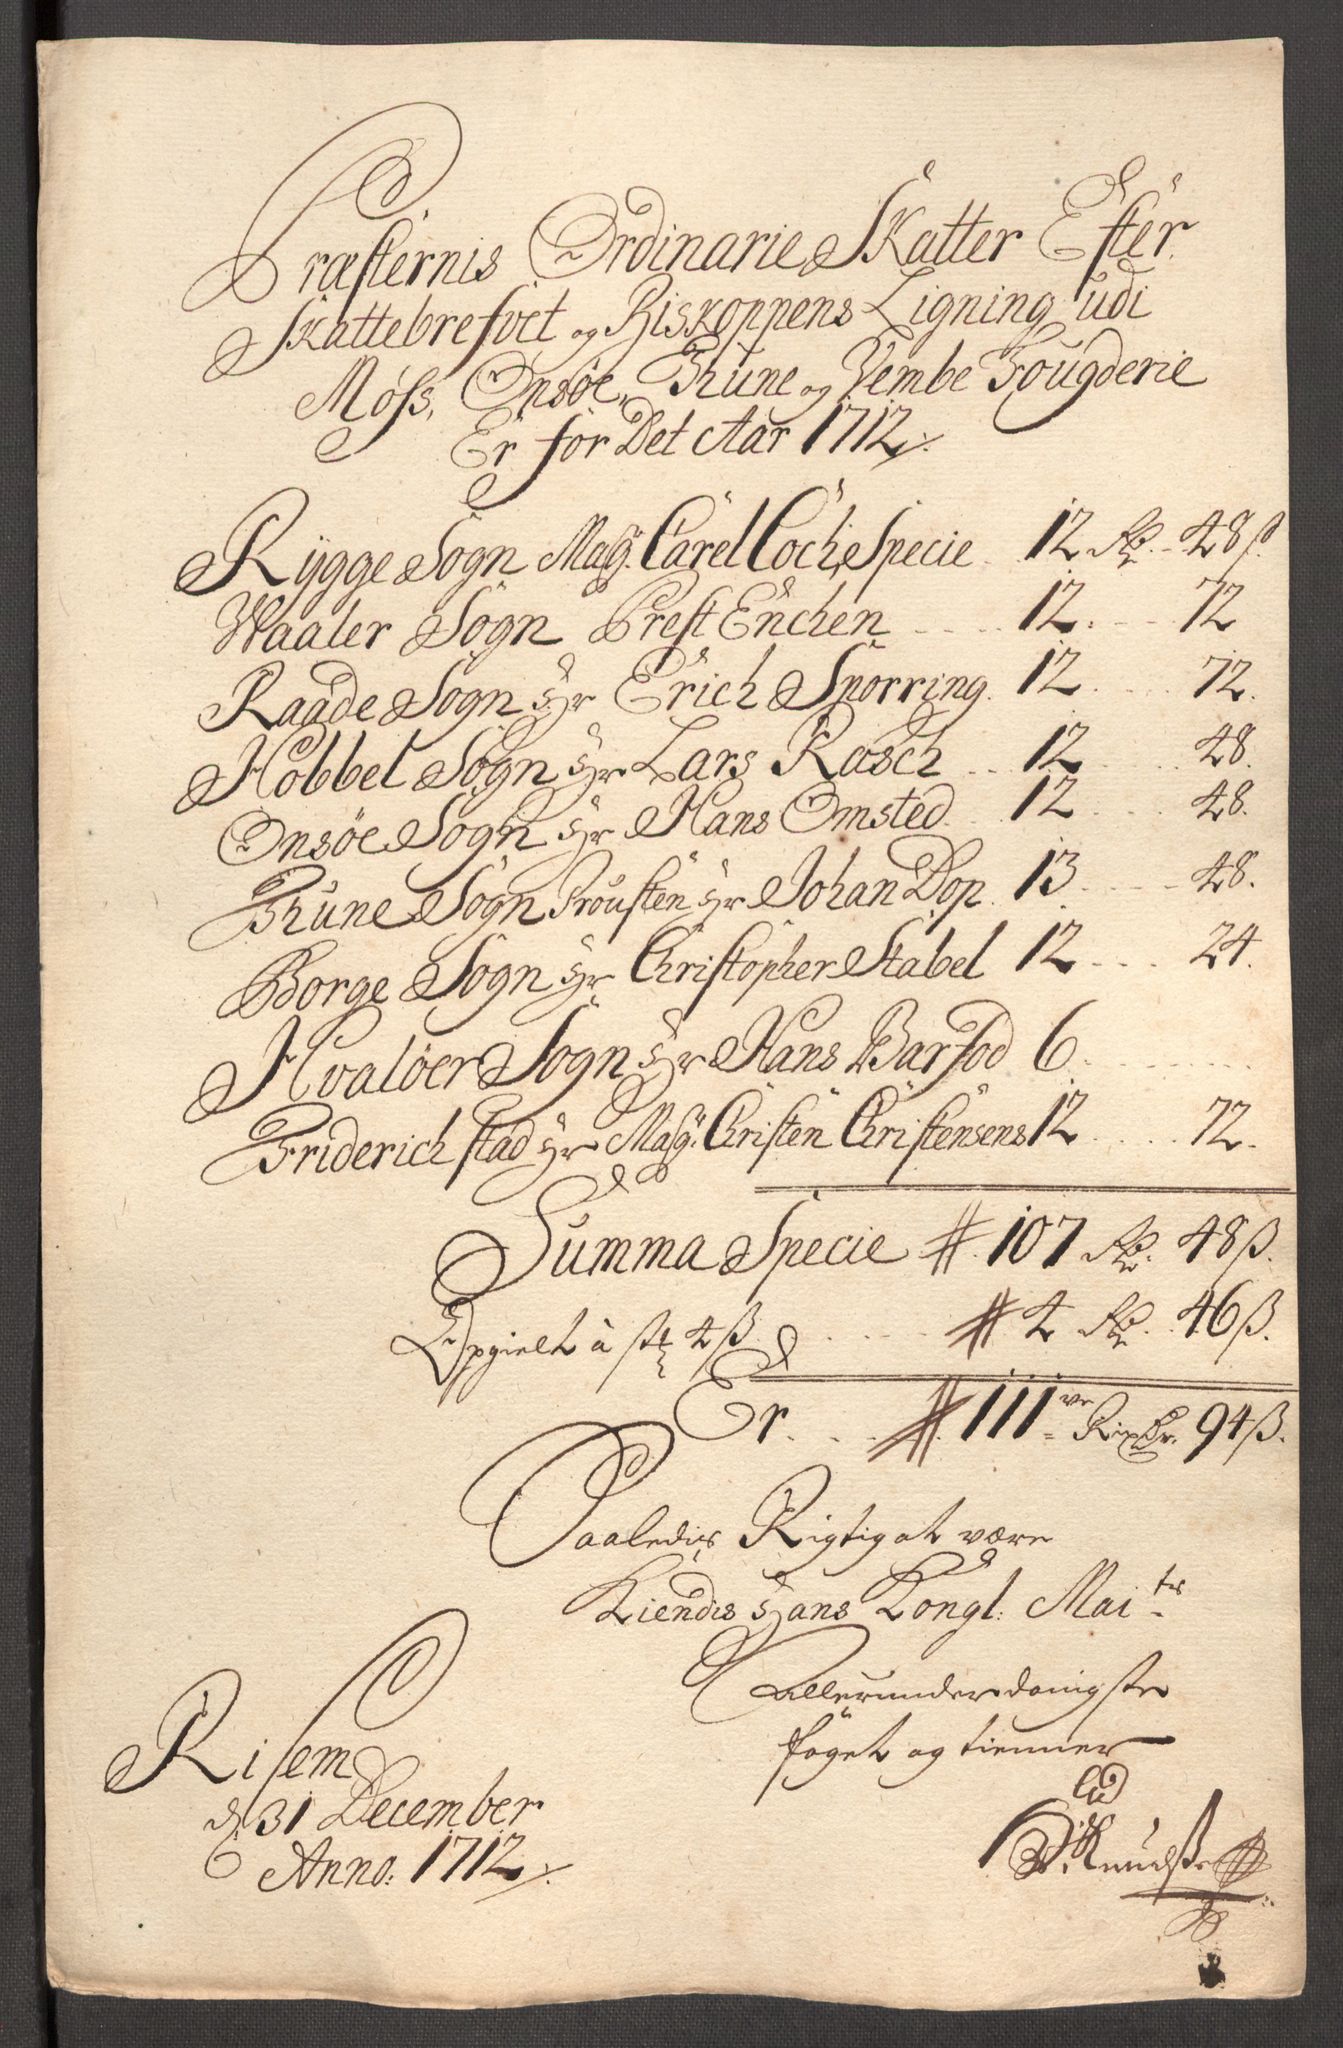 Præsternis Ordinarie Skatter Efter
Skattebrefvet og Biskoppens Ligning udi
Moss, Onsöe, Thune og Vembe Fougderie
Er for Det Aar 1712
Rygge Sogn Mag: Carel Coch, Specie 12 Rdr 48 ß.
Waaler Sogn Prest Enchen 12 72
Raade Sogn Hr Erich Sporring 12 72.
Hobbel Sogn Hr Lars Rasch 12 48.
Onsöe Sogn Hr Hans Omsted 12 48.
Thune Sogn Prousten Hr Johan Dop 13 48.
Borge Sogn Hr Christopher Stabel 12 24.
Hvalöer Sogn Hr Hans Barfod 6
Friderichstad Hr Mag: Christen Christensens 12 72.
Summa Specie # 107 Rdr. 48 ß.
Opgielt à st 4 ß # 4 Rdr. 46 ß.
Er # 111 ve Rixdr. 94 ß.
Saaledis Rigtig at være
Kiendis Hans Kongl: Mai ts
Allerunderdanigste
foget og tienner
N: Knudsen
Risem
d 31 December
Anno: 1712